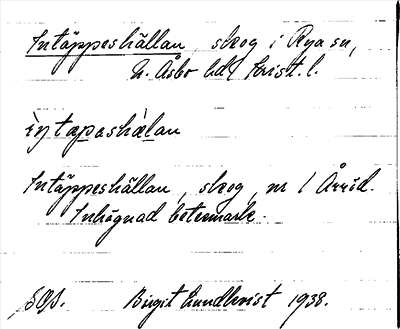 Intäppeshällan, skog i Rya sn,
N. Åsbo hd Krist. l.
ìntapashǽlan
Intäppeshällan, skog, nr 1 Årröd.
Inhägnad betesmark.
SOS. Birgit Lundkvist 1938.